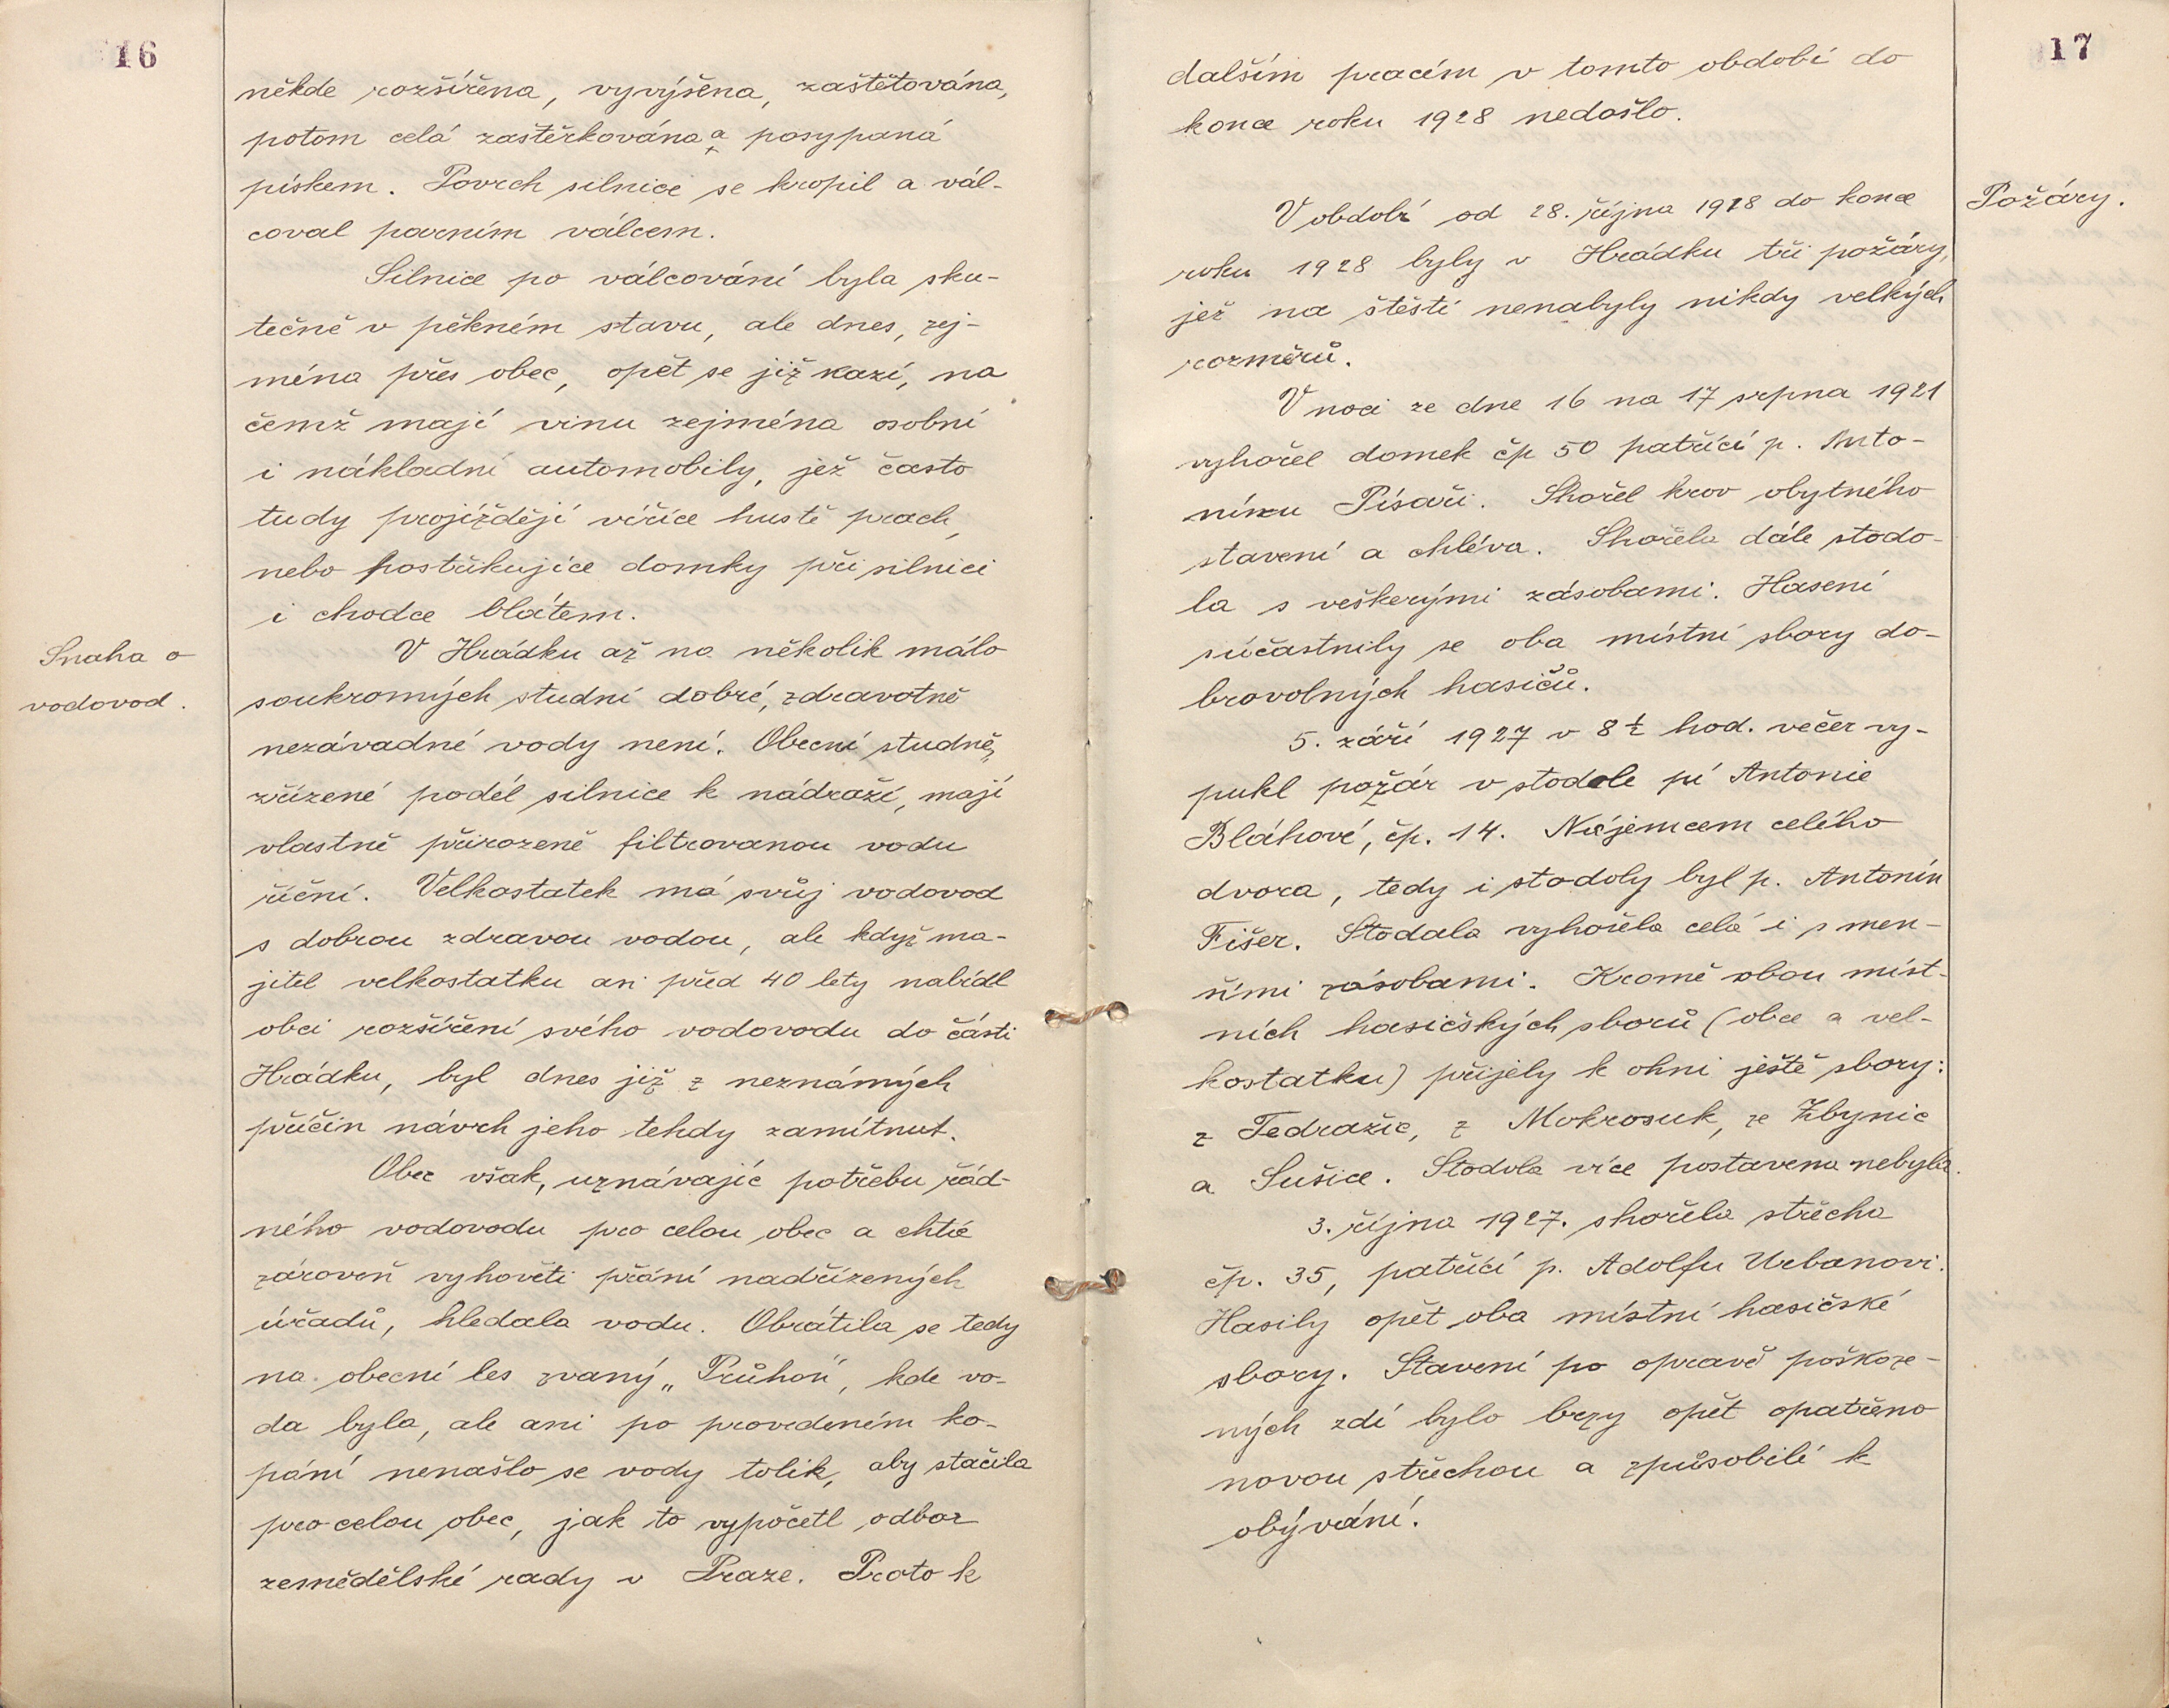 16
někde rozšířena, vyvýšena, zaštětována,
potom celá zaštěrkována a posypaná
pískem. Povrch silnice se kropil a vál-
coval parním válcem.
Silnice po válcování byla sku-
tečně v pěkném stavu, ale dnes, zej-
ména přes obec, opět se již kazí, na
čemž mají vinu zejména osobní
i nákladní automobily, jež často
tudy projíždějí víříce hustě prach,
nebo postřikujíce domky při silnici
i chodce blátem.
Snaha o
vodovod.
V Hrádku až na několik málo
soukromých studní dobré, zdravotně
nezávadné vody není. Obecní studně,
zřízené podél silnice k nádraží, mají
vlastně přirozeně filtrovanou vodu
říční. Velkostatek má svůj vodovod
s dobrou zdravou vodou, ale když ma-
jitel velkostatku asi před 40 lety nabídl
obci rozšíření svého vodovodu do části
Hrádku, byl dnes již z neznámých
příčin návrh jeho tehdy zamítnut.
Obec však, uznávajíc potřebu řád-
ného vodovodu pro celou obec a chtíc
zároveň vyhověti přání nadřízených
úřadů, hledala vodu. Obrátila se tedy
na obecní les zvaný „Průhon", kde vo-
da byla, ale ani po provedeném ko-
pání nenašlo se vody tolik, aby stačila
pro celou obec, jak to vypočetl odbor
zemědělské rady v Praze. Proto k
17
dalším pracím v tomto období do
konce roku 1928 nedošlo.
Požáry.
V období od 28. října 1918 do konce
roku 1928 byly v Hrádku tři požáry,
jež na štěstí nenabyly nikdy velkých
rozměrů.
V noci ze dne 16 na 17 srpna 1921
vyhořel domek čp 50 patřící p. Anto-
nínu Písaři. Shořel krov obytného
stavení a chléva. Shořela dále stodo-
la s veškerými zásobami. Hasení
súčastnily se oba místní sbory do-
brovolných hasičů.
5. září 1927 v 8½ hod. večer vy-
pukl požár v stodole pí Antonie
Bláhové, čp. 14. Nájemcem celého
dvora, tedy i stodoly byl p. Antonín
Fišer. Stodala vyhořela celá i s men-
šími zásobami. Kromě obou míst-
ních hasičských sborů (obce a vel-
kostatku) přijely k ohni ještě sbory:
z Tedražic, z Mokrosuk, ze Zbynic
a Sušice. Stodola více postavena nebyla.
3. října 1927. shořela střecha
čp. 35, patřící p. Adolfu Urbanovi.
Hasily opět oba místní hasičské
sbory. Stavení po opravě poškoze-
ných zdí bylo brzy opět opatřeno
novou střechou a způsobilé k
obývání.